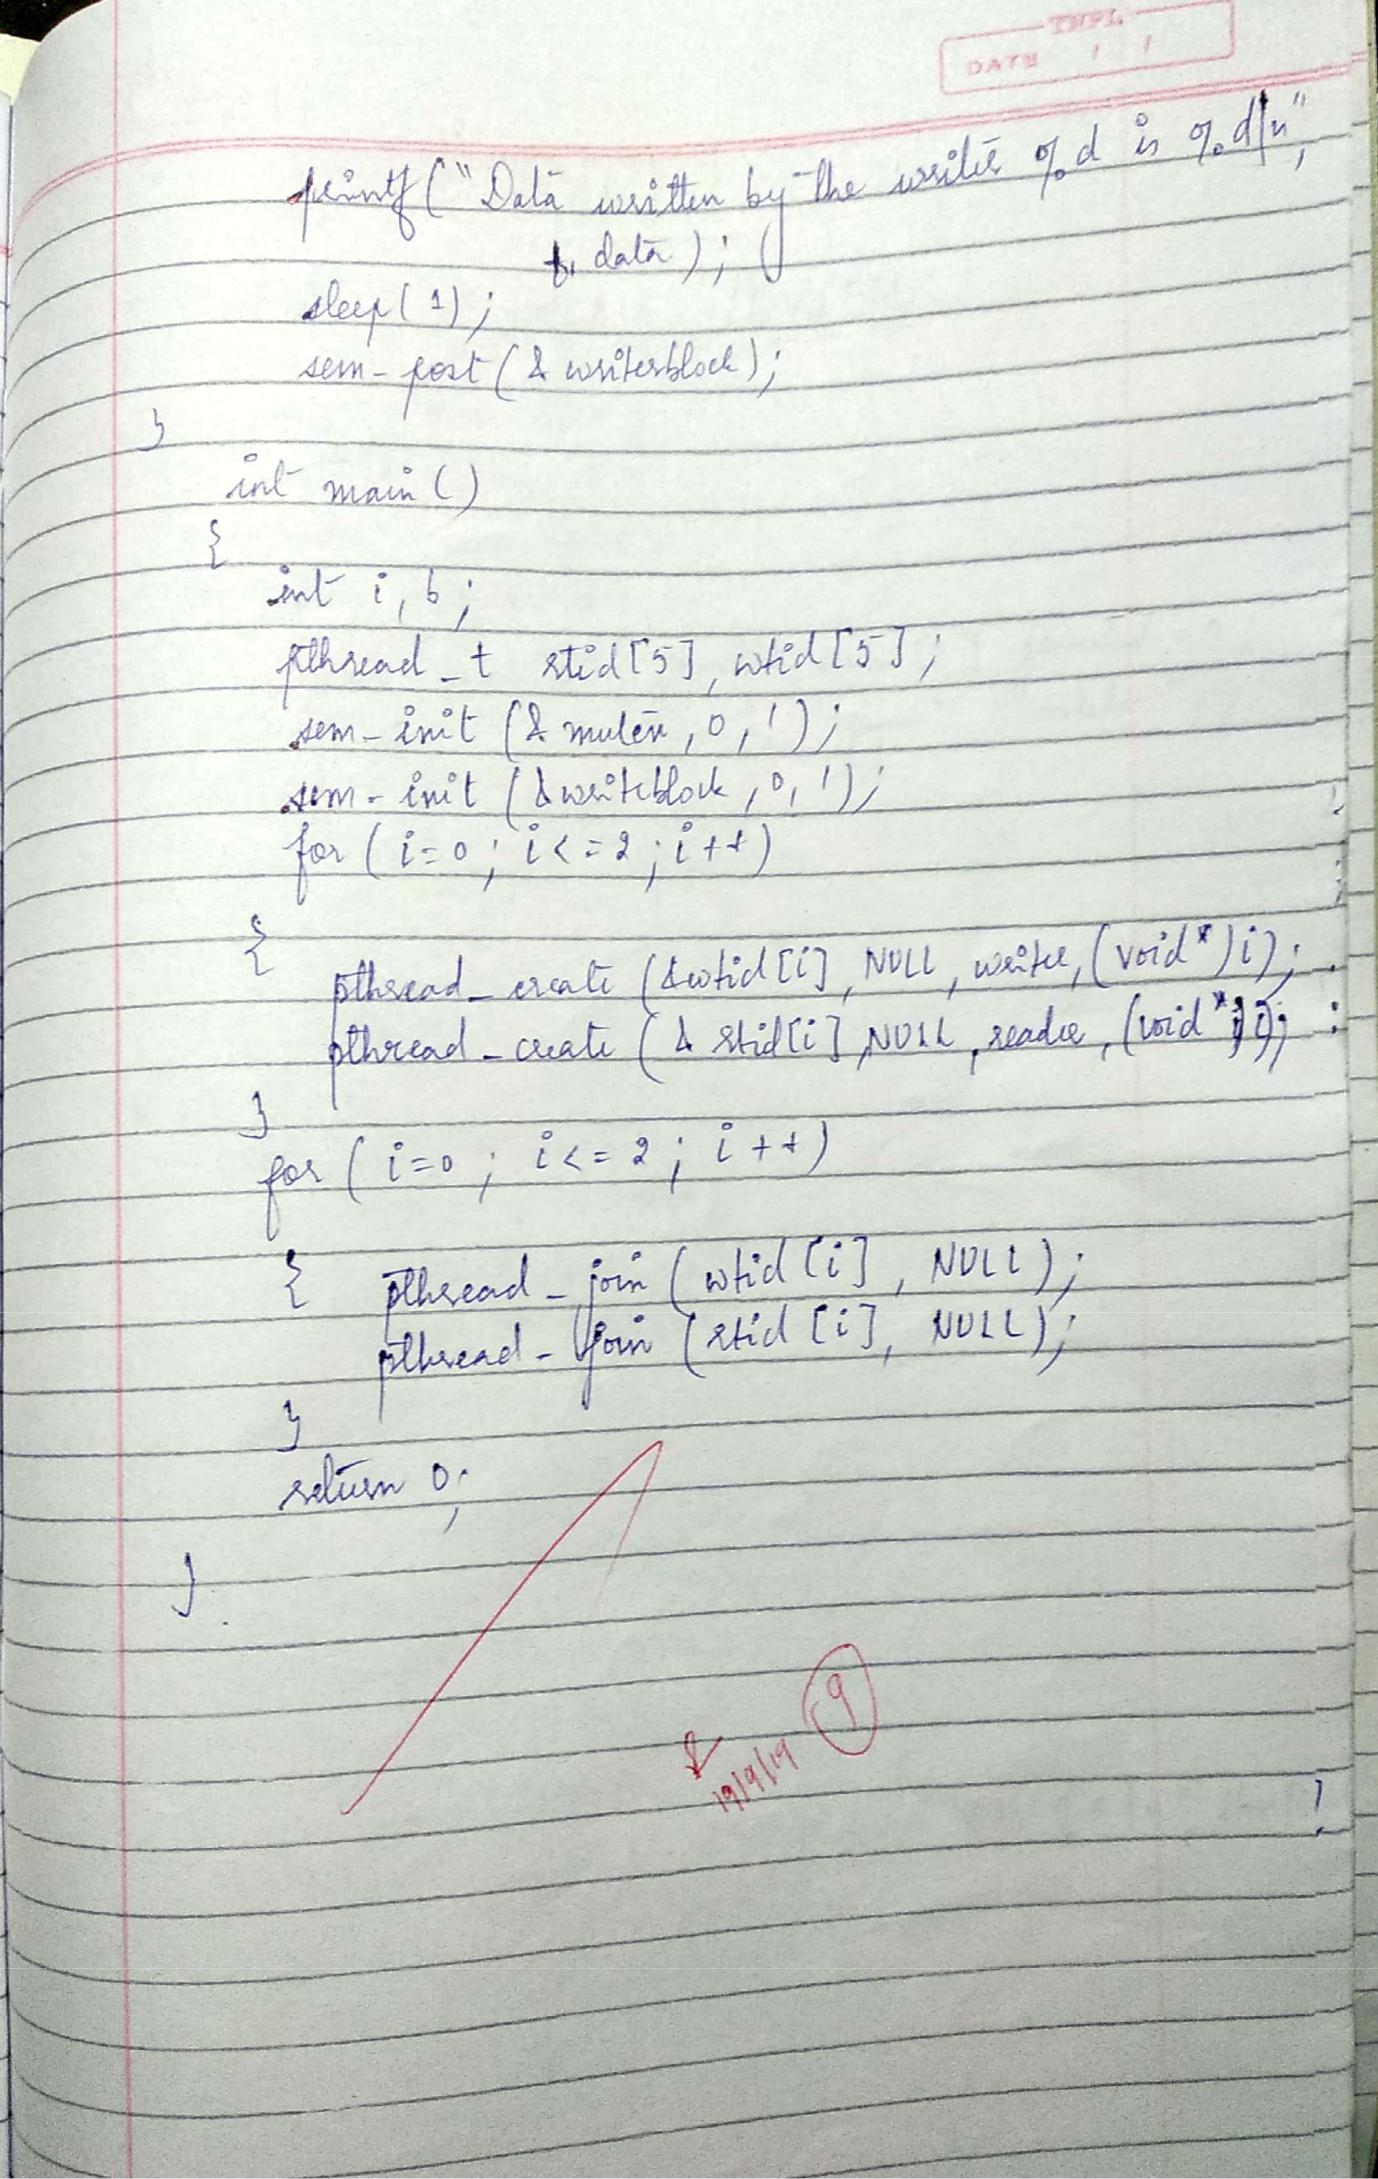 TNPL
DATE / /
printf("Data written by the writer %d is %d\n",
f, data);
sleep(1);
sem-post(& writerblock);
}
int main()
{
int i, b;
pthread_t rtid[5], wtid[5];
sem-init (& mutex, 0, 1);
sem-init (&writeblock, 0, 1);
for (i=0; i<=2; i++)
{
pthread_create (&wtid[i], NULL, writer, (void*)i);
pthread_create (& rtid[i], NULL, reader, (void*)i);
}
for (i=0; i<=2; i++)
{ pthread_join (wtid[i], NULL);
pthread_join (rtid[i], NULL);
}
return 0;
}
9
19/9/19